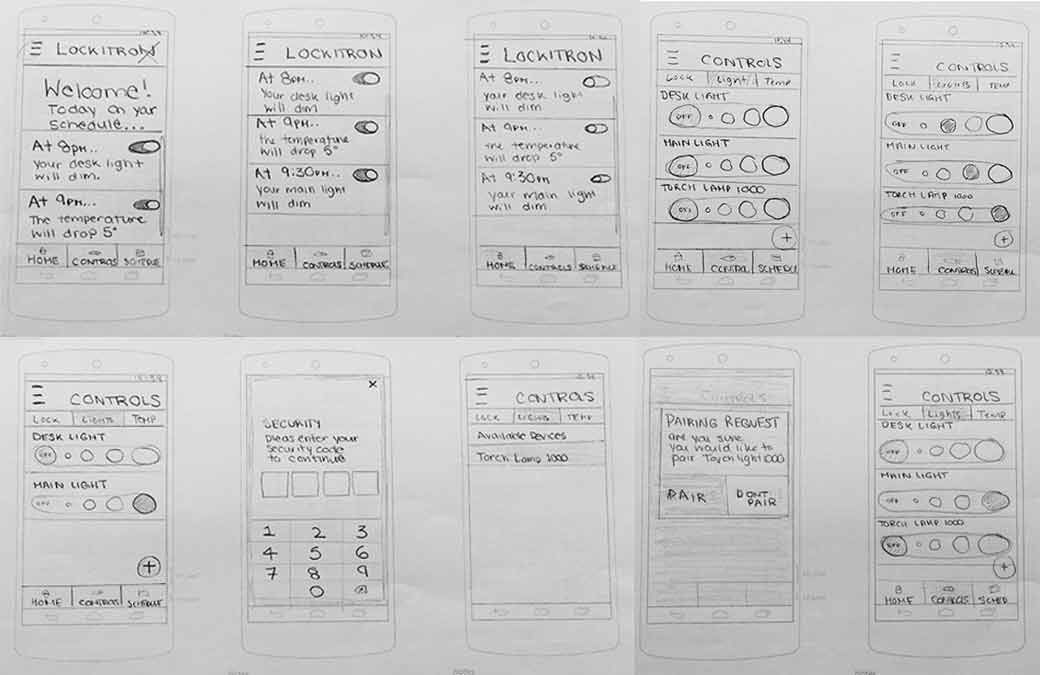 LOCKITRON
Welcome!
Today on your
schedule...
At 8pm..
your desk light
will dim.
At 9pm..
The temperature
will drop 5°
HOME CONTROLS SCHEDULE
LOCKITRON
At 8pm..
Your desk light
will dim
At 9pm..
the temperature
will drop 5°
At 9:30pm..
your main light
will dim
HOME CONTROLS SCHEDULE
LOCKITRON
At 8pm...
your desk light
will dim
At 9pm...
the temperature
will drop 5°
At 9:30pm
your main light
will dim
HOME CONTROLS SCHEDULE
CONTROLS
Lock Light Temp
DESK LIGHT
OFF
MAIN LIGHT
OFF
TORCH LAMP 1000
OFF
+
HOME CONTROL SCHEDULE
CONTROLS
LOCK LIGHTS TEMP
DESK LIGHT
OFF
MAIN LIGHT
OFF
TORCH LAMP 1000
OFF
+
HOME CONTROLS SCHEDULE
CONTROLS
LOCK LIGHTS TEMP
DESK LIGHT
OFF
MAIN LIGHT
OFF
+
HOME CONTROLS SCHEDULE
X
SECURITY
pleas enter your
security code
to continue
1 2 3
4 5 6
7 8 9
0
CONTROLS
LOCK LIGHTS TEMP
Available Devices
Torch Lamp 1000
Controls
PAIRING REQUEST
are you sure
you would like to
pair Torch light 1000
PAIR DONT
PAIR
CONTROLS
Lock Lights Temp
DESK LIGHT
OFF
MAIN LIGHT
OFF
TORCH LAMP 1000
OFF
+
HOME CONTROLS SCHED
notes